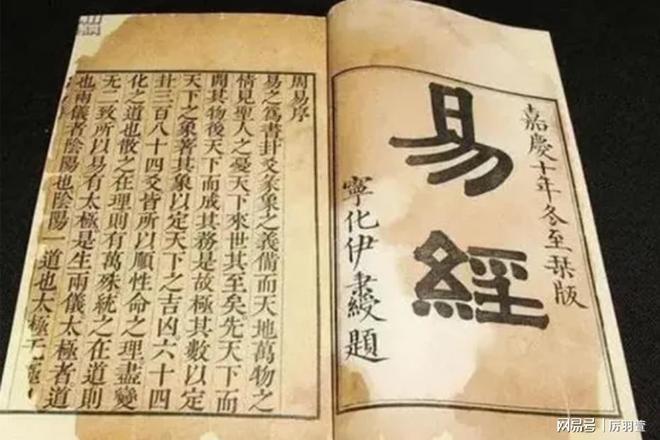 嘉慶十年冬至栞版
易經
寧化伊秉綬題
周易序
易之爲書卦爻彖象之義備而天地萬物之
情見聖人之憂天下來世其至矣先天下而
開其物後天下而成其務是故極其數以定
天下之象著其象以定天下之吉凶六十四
卦三百八十四爻皆所以順性命之理盡變
化之道也散之在理則有萬殊統之在道則
无二致所以易有太極是生兩儀太極者道
也兩儀者陰陽也陰陽一道也太極无極
网易号 | 厉羽萱